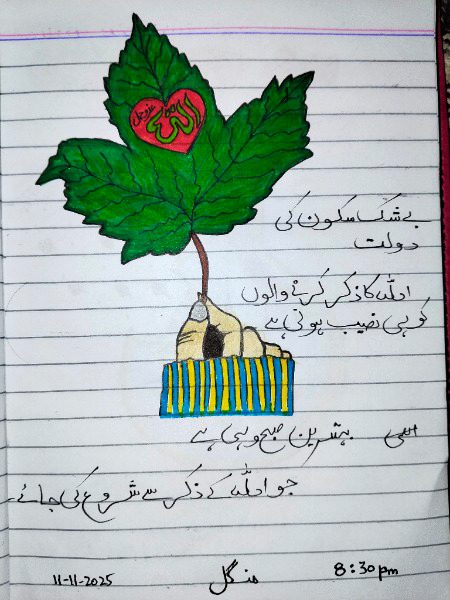 اللہ عزوجل
بے شک سکون کی
دولت
اللہ کا ذکر کرنے والوں
کو ہی نصیب ہوتی ہے
بہترین صبح وہی ہے
جو اللہ کے ذکر سے شروع کی جائے۔
11-11-2025 منگل 8:30pm